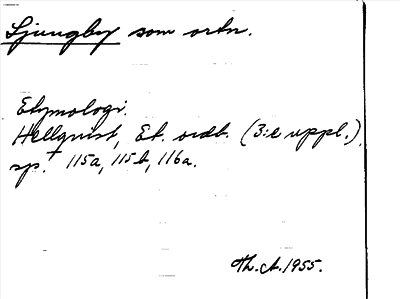 Ljungby som ortn.
Etymologi.
Hellquist, Et. ordb. (3:e uppl.),
sp. 115a, 115b, 116a.
Th.A. 1955.